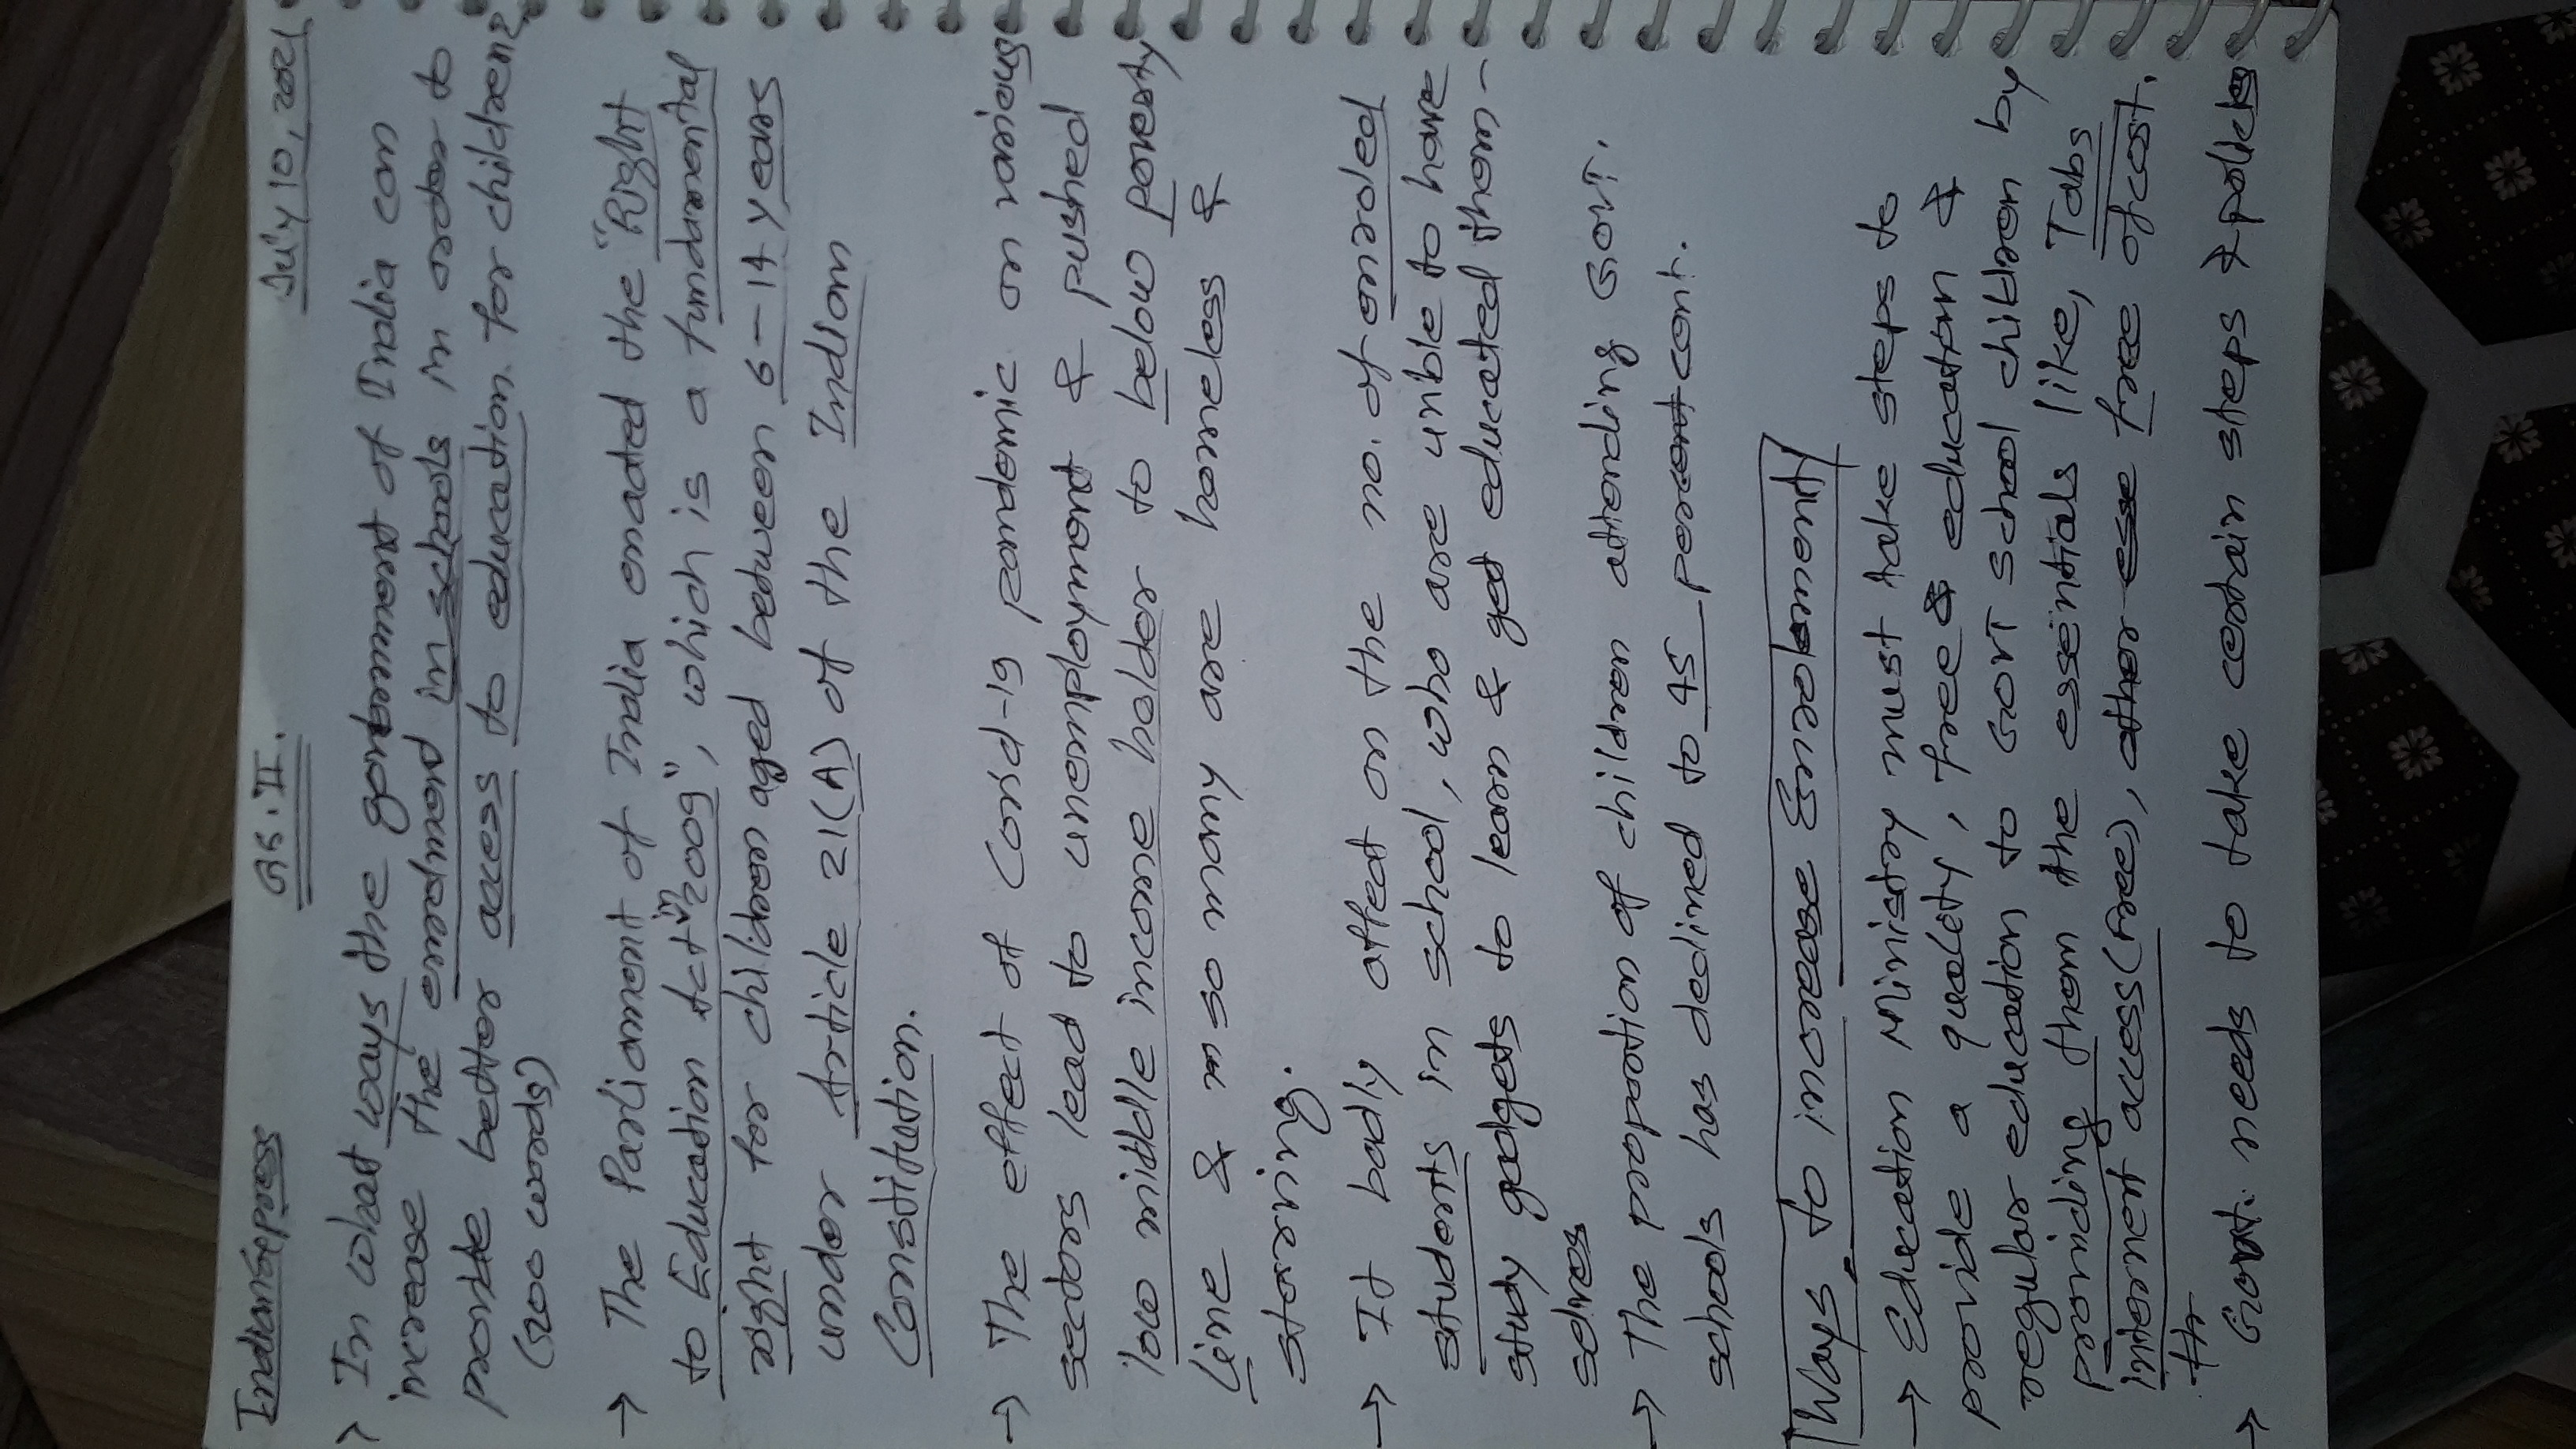 Indianexpress GS.II. July 10, 2021
> In what ways the government of India can
increase the enrolment in schools in order to
provide better access to education for children?
(200 words)
→ The Parliament of India enacted the "Right
to Education Act" "2009", which is a fundamental
right for children aged between 6-14 years
under Article 21(A) of the Indian
Constitution.
→ The effect of Covid-19 pandemic on various
sectors lead to unemployment & pushed
low middle income holder to below poverty
line & so many are homeless &
starving.
→ It badly affect on the no. of enroled
students in school, who are unble to have
study gadgets to learn & get educated them-
selves
→ The proportion of children attending Govt.
schools has declined to 45 percent cent.
Ways to increase Enrolement
→ Education Ministry must take steps to
provide a quality, free & education &
regular education to Govt school children by
providing them the essentials like, Tabs
internet access (Free), other esse free of cost.
th
→ Govt. needs to take certain steps & policies